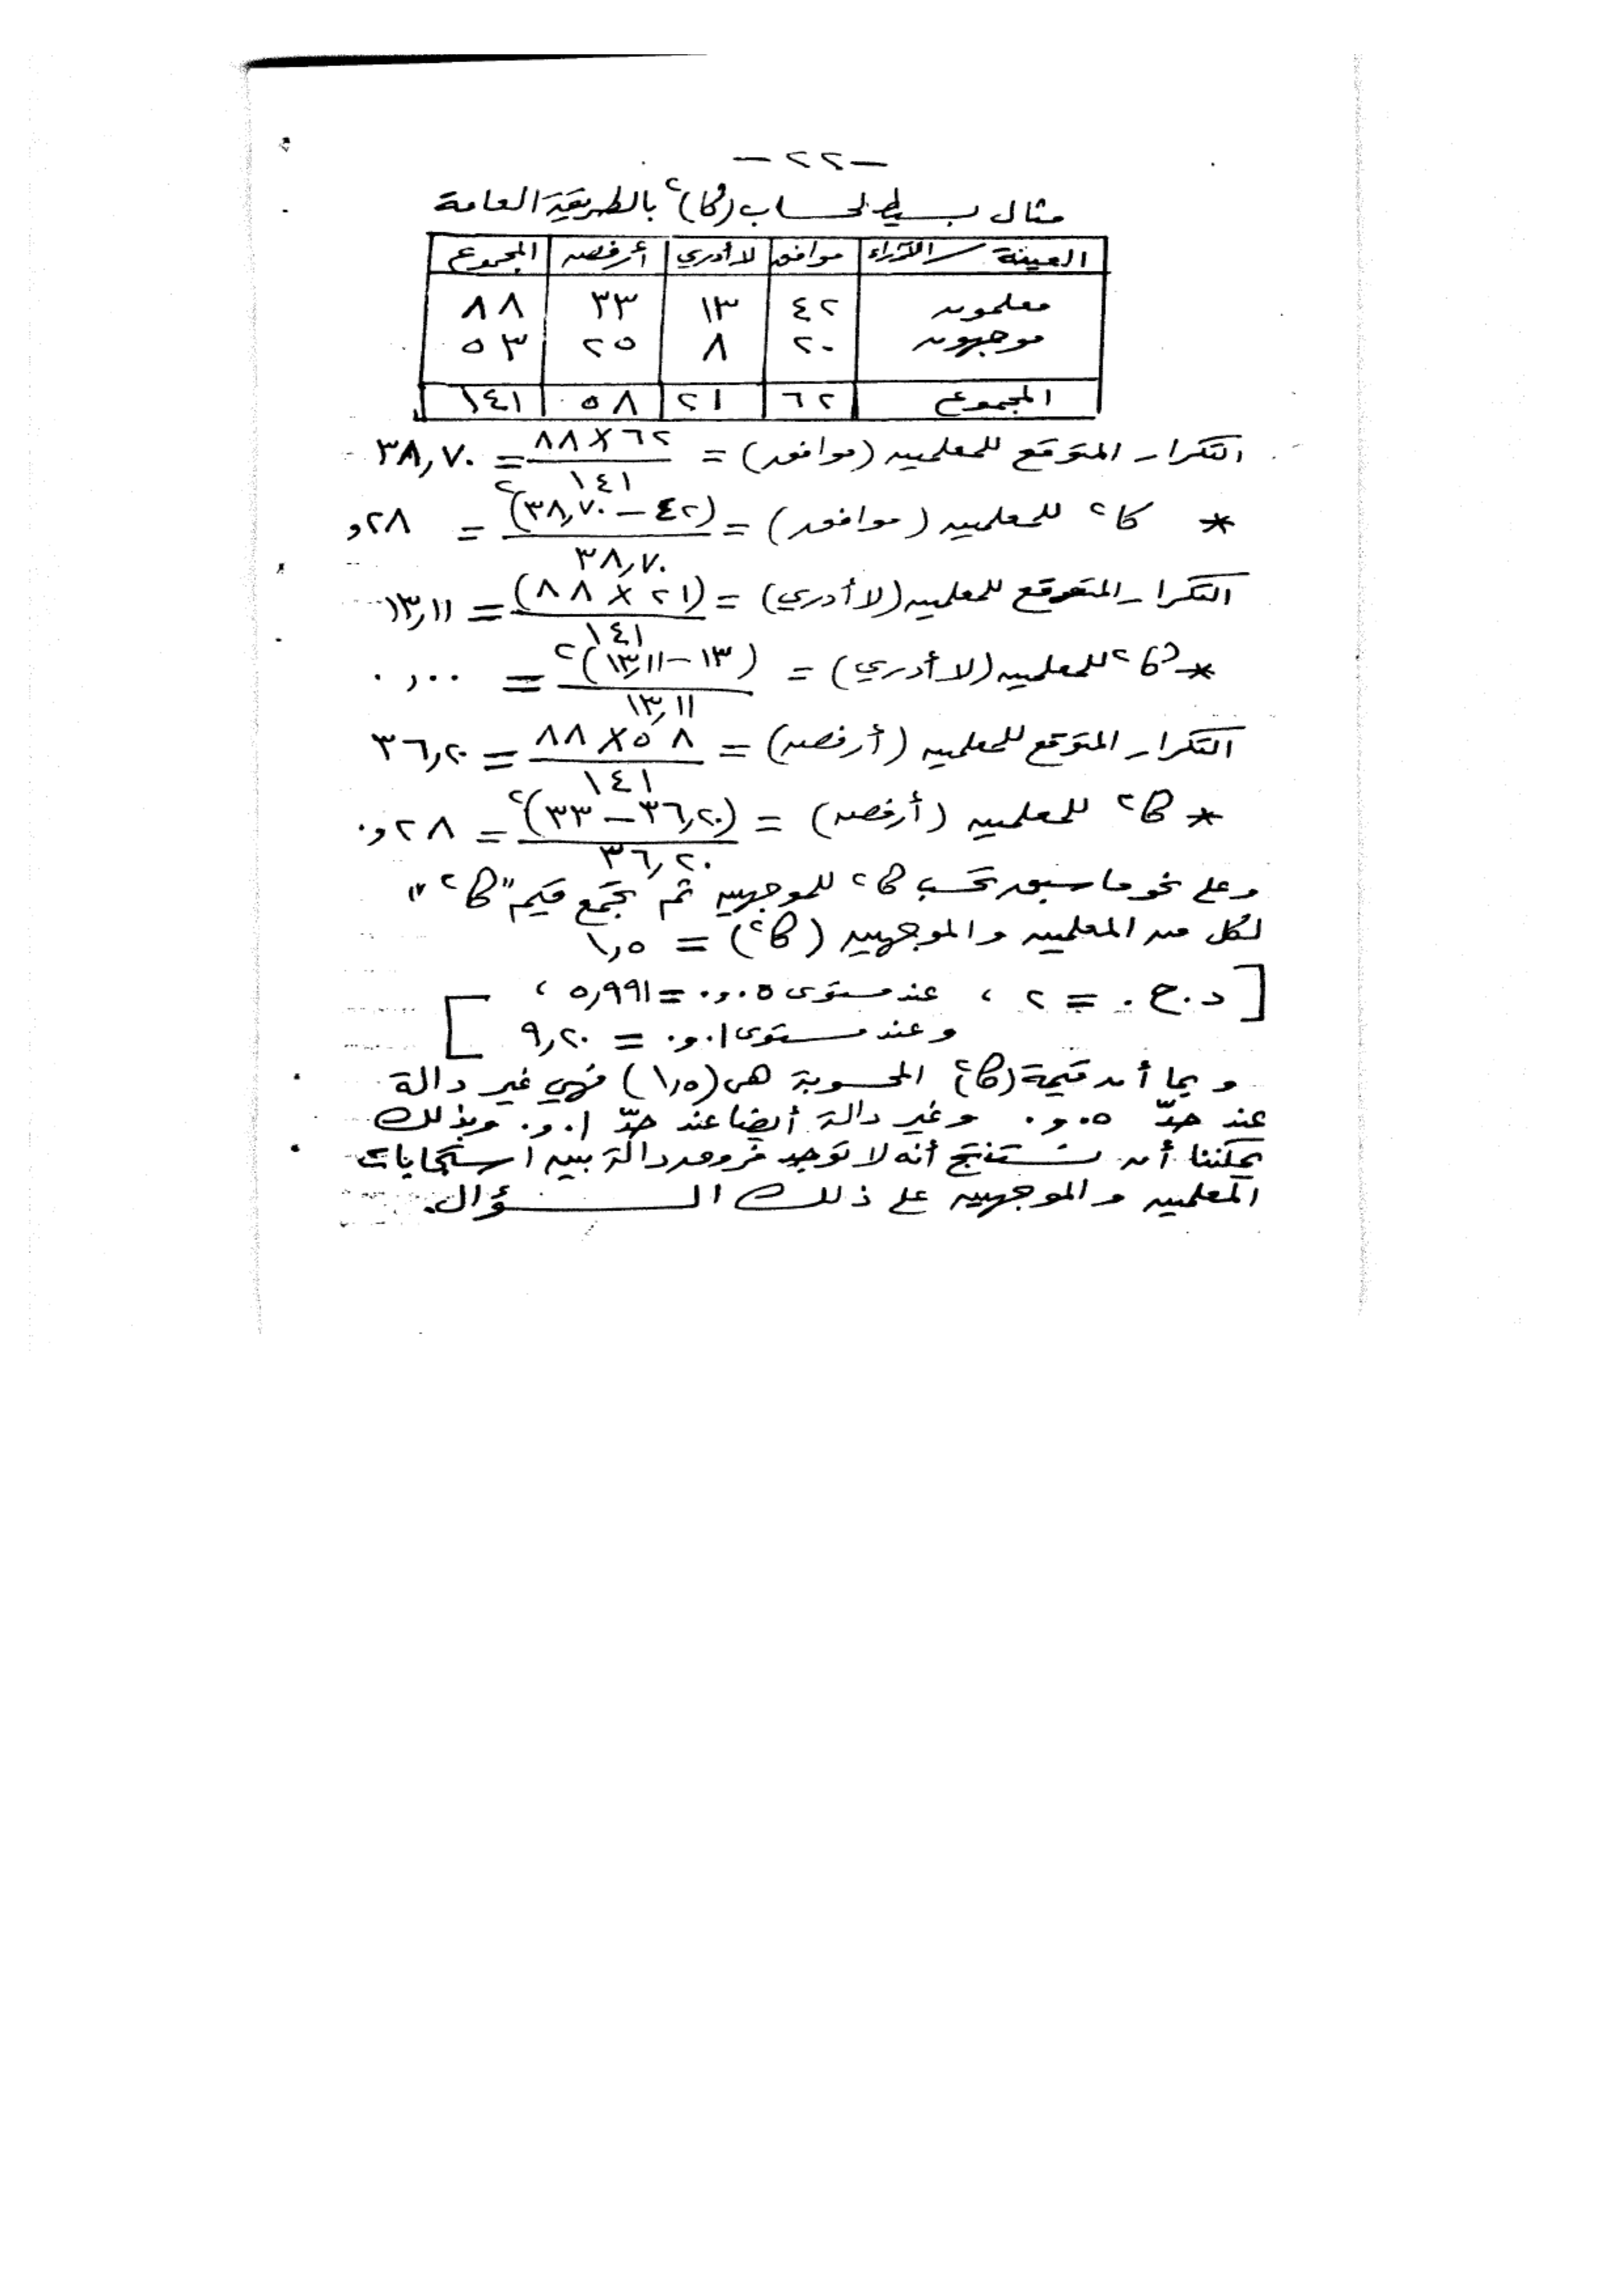 -٢٢-
مثال بسيط لحساب (كا)٢ بالطريقة العامة
العينة / الآراء موافق لا أدري أرفض المجموع
معلمون ٤٢ ١٣ ٣٣ ٨٨
موجهون ٢٠ ٨ ٢٥ ٥٣
المجموع ٦٢ ٢١ ٥٨ ١٤١
التكرار المتوقع للمعلمين (موافق) = ٦٢ × ٨٨ / ١٤١ = ٣٨,٧٠
* كا٢ للمعلمين (موافق) = (٤٢ - ٣٨,٧٠)٢ / ٣٨,٧٠ = ٢٨و
التكرار المتوقع للمعلمين (لا أدري) = (٢١ × ٨٨) / ١٤١ = ١٣,١١
* كا٢ للمعلمين (لا أدري) = (١٣ - ١٣,١١)٢ / ١٣,١١ = ٠,٠٠
التكرار المتوقع للمعلمين (أرفض) = ٥٨ × ٨٨ / ١٤١ = ٣٦,٢٠
* كا٢ للمعلمين (أرفض) = (٣٦,٢٠ - ٣٣)٢ / ٣٦,٢٠ = ٢٨و٠
وعلى نحو ما سبق تحسب كا٢ للموجهين ثم تجمع قيم "كا٢"
لكل من المعلمين والموجهين (كا٢) = ١,٥
[د.ح. = ٢ ، عند مستوى ٠٥و٠ = ٥,٩٩١ ،
وعند مستوى ٠١و٠ = ٩,٢٠]
وبما أن قيمة (كا٢) المحسوبة هى (١,٥) فهي غير دالة
عند حدّ ٠٥و٠ وغير دالة أيضا عند حدّ ٠١و٠ وبذلك
يمكننا أن نستنتج أنه لا توجد فروق دالة بين استجابات
المعلمين والموجهين على ذلك السؤال.